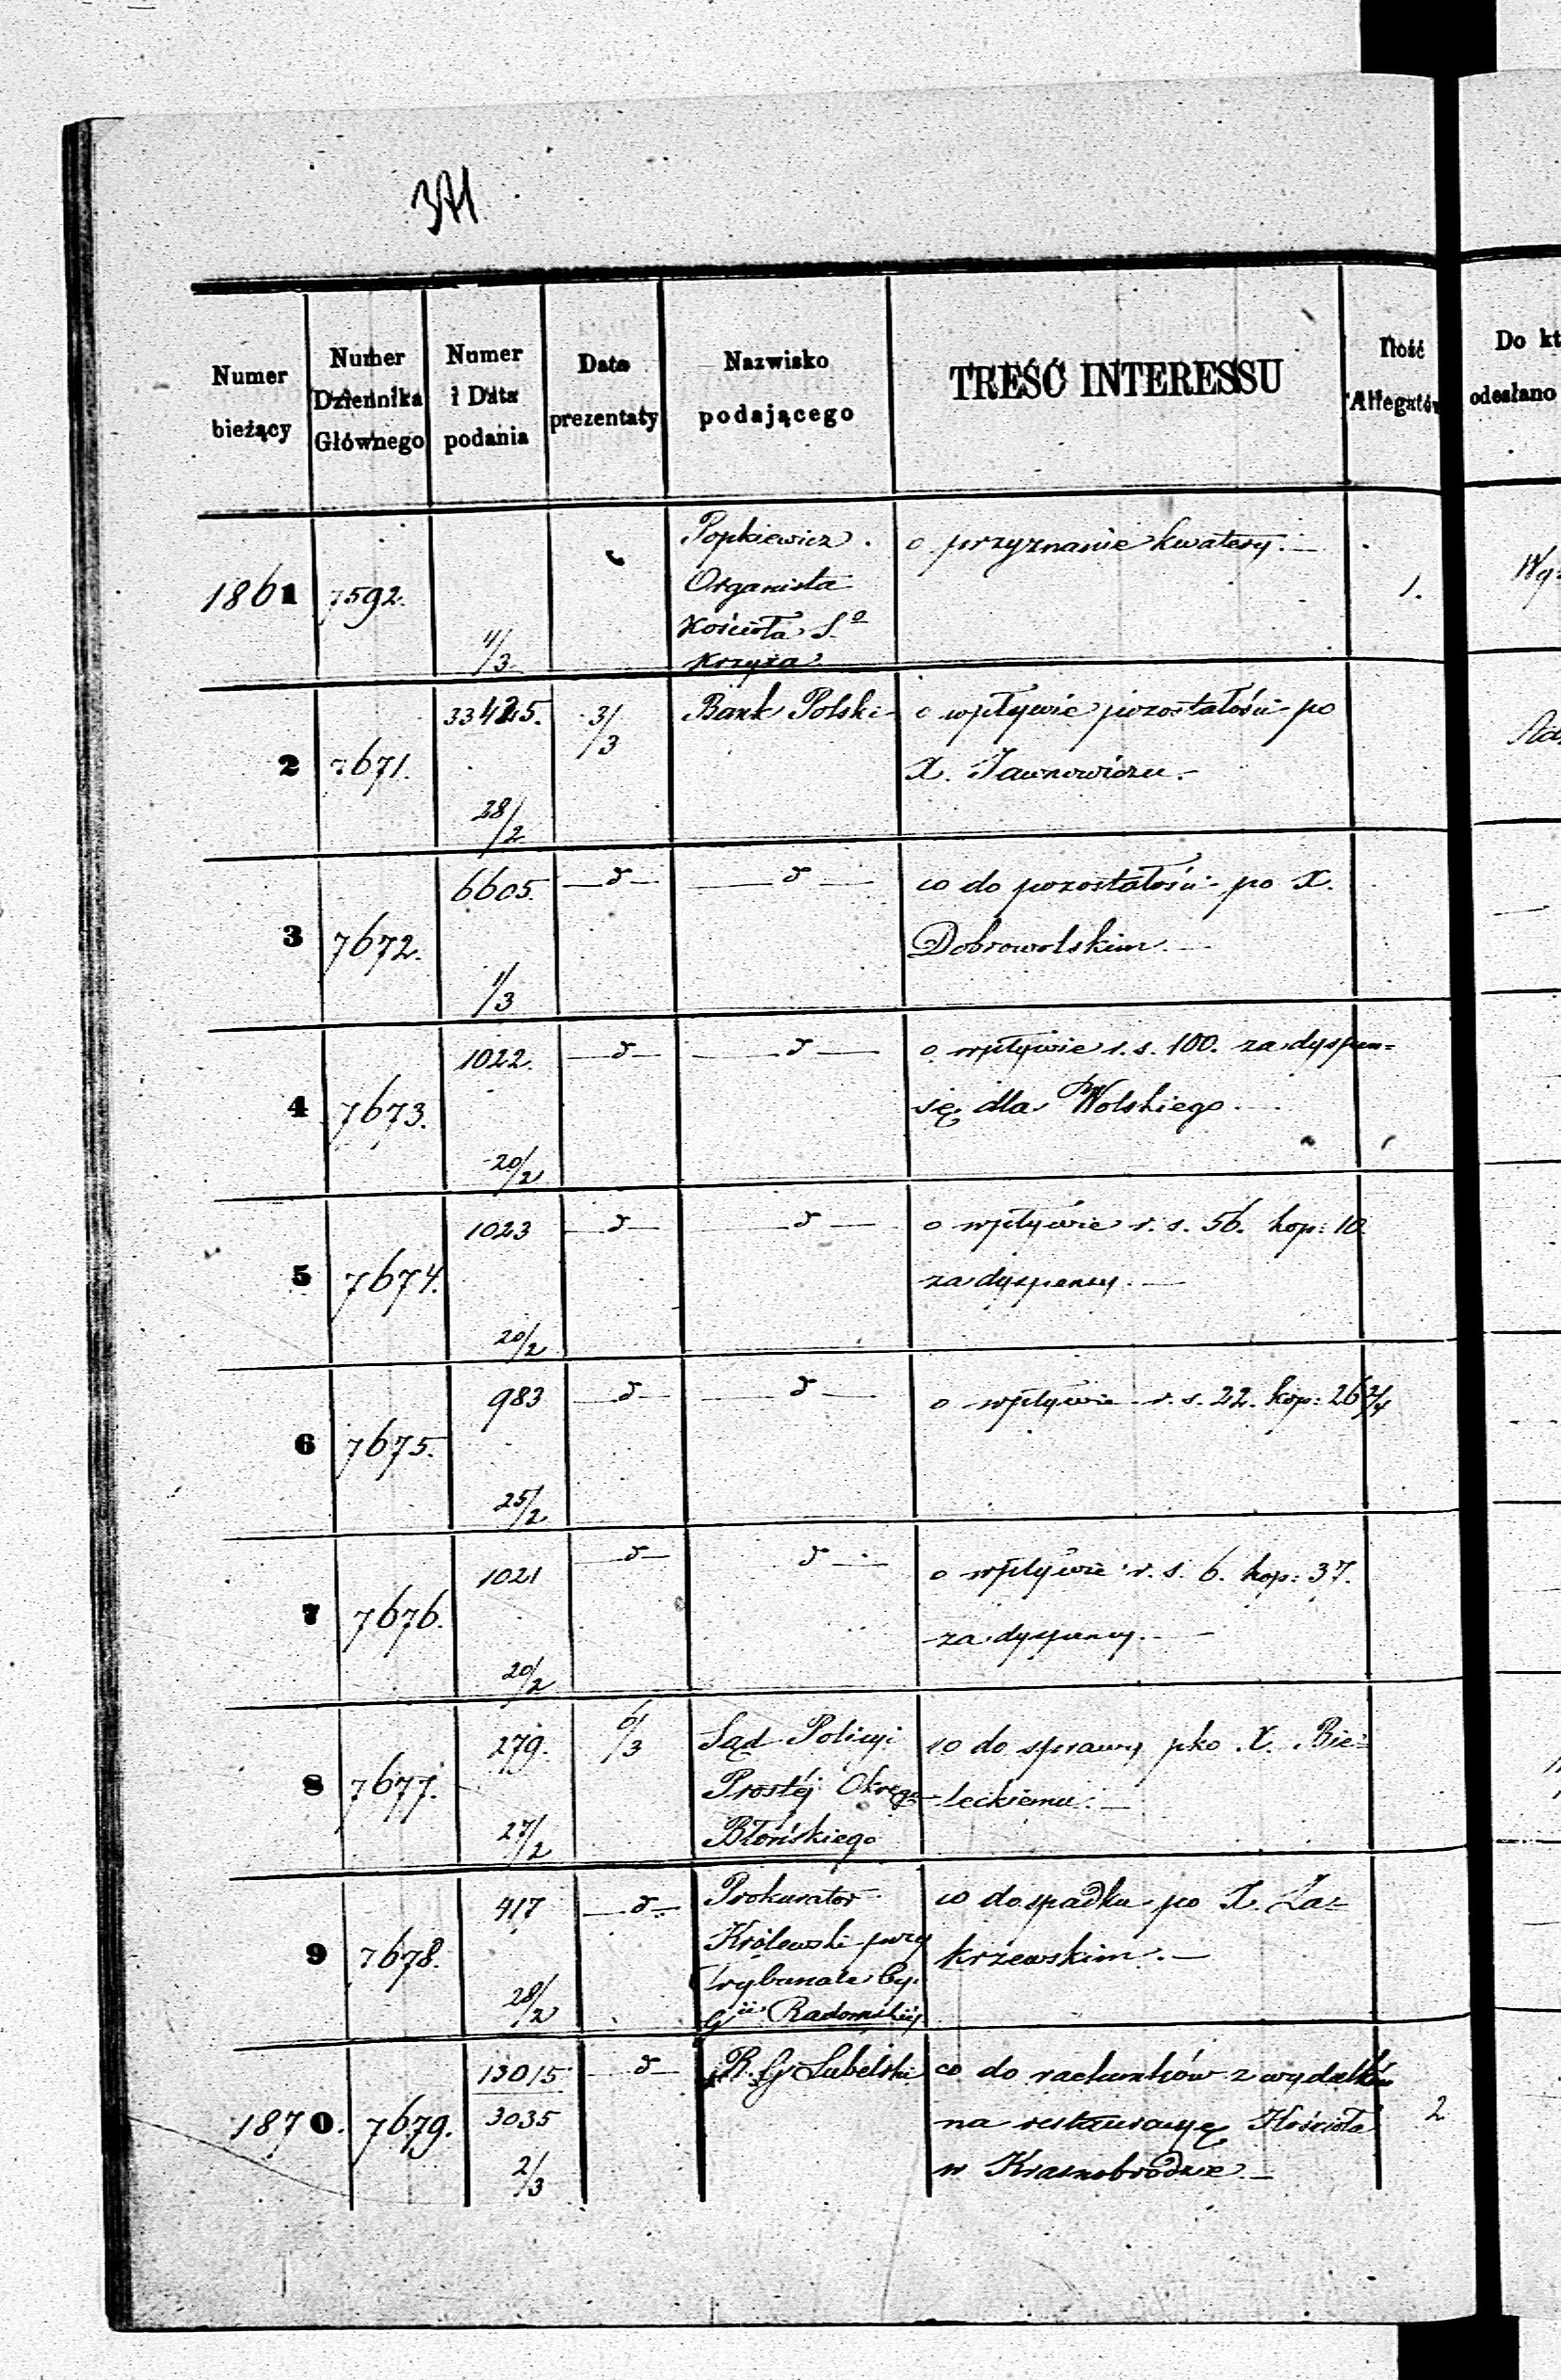 371
Numer bieżący
Numer Dziennika Głównego
Numer i Data podania
Data prezentaty
Nazwisko podającego
TREŚĆ INTERESSU
Ilość Allegatów
Do kt
odesłano
1861 7592. 1/3 Popkiewicz o przyznanie kwatery.— 1.
Organista
Kościoła Sgo
Krzyża
2 7671. 33425. 28/2 3/3 Bank Polski o wpływie pozostałości po
X. Jawnowiczu.—
3 7672. 6605. 1/3 —d— —d— co do pozostałości po X.
Dobrowolskim.—
4 7673. 1022. 20/2 —d— —d— o wpływie r. s. 100. za dyspen=
sę dla Wolskiego.—
5 7674. 1023 20/2 —d— —d— o wpływie r. s. 56. kop: 10.
za dyspensy.—
6 7675. 983 25/2 —d— —d— o wpływie r. s. 22. kop: 26 2/4
7 7676. 1021 20/2 —d— d— o wpływie r. s. 6. kop: 37.
za dyspensy.—
8 7677. 279. 27/2 6/3 Sąd Policyi co do sprawy pko X. Bie=
Prostéj Okręgu leckiemu.—
Błońskiego
9 7678. 417 28/2 —d— Prokurator co do spadku po X. Za=
Królewski przy krzewskim.—
Trybunale Cy.
Gii Radomskiéj
1870. 7679. 13015 3035 2/3 —d— R. G. Lubelski co do rachunków z wydatków 2
na restauracyę Kościoła
w Krasnobrodzie—